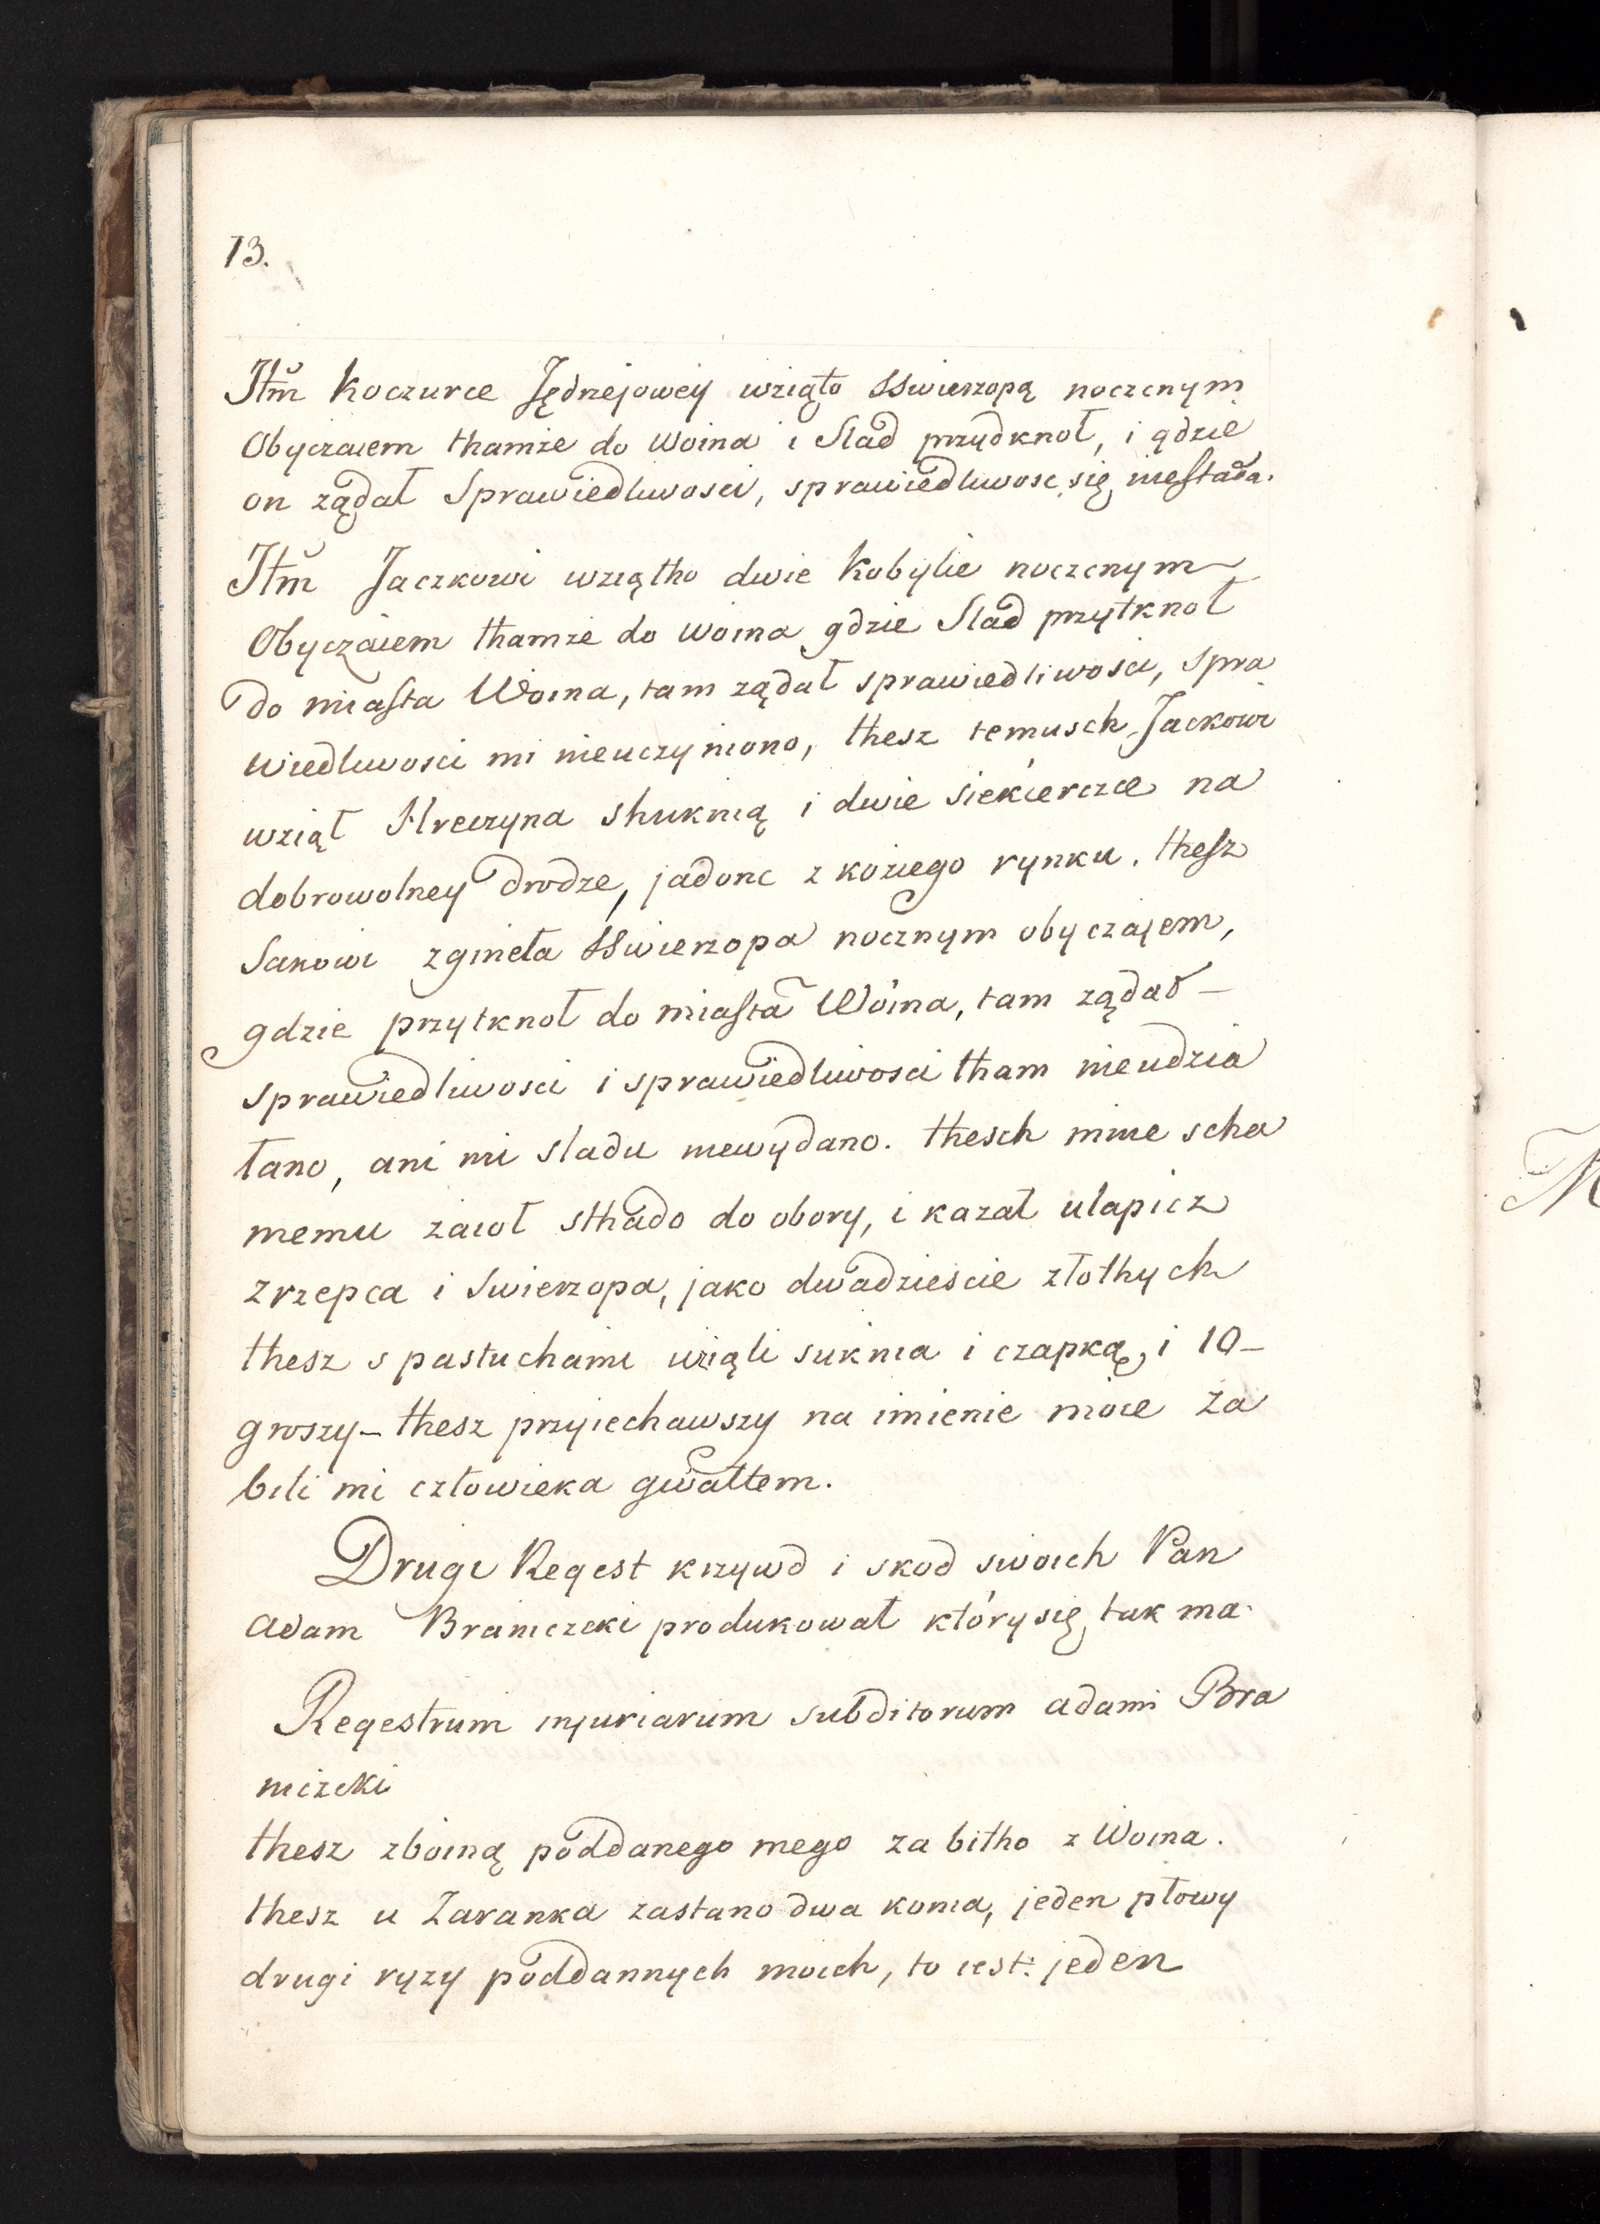 73.
Itm̃ Koczurce Jędrzejowey wziąto Sswierzopą noczcnym
Obyczaiem thamże do Woina i Slad przydknoł, i gdzie
on ządał Sprawiedliwosci, sprawiedliwosc się niestała.
Itm̃ Jaczkowi wziątho dwie Kobylie noczcnym
Obyczaiem thamże do Woina gdzie Slad przytknoł
do miasta Woina, tam ządał sprawiedliwosci, spra
wiedliwosci mi nieuczyniono, thesz temusch Jackowi
wziął Hreczyna shuknią i dwie siekiercze na
dobrowolney drodze, jadonc z koziego rynku. thesz
Sakowi zgineła Sswierzopa nocznym obyczajem,
gdzie przytknoł do miasta Woina, tam ządał –
sprawiedliwosci i sprawiedliwosci tham nieudzia
łano, ani mi sladu niewydano. thesch mnie scha
memu zaioł sthado do obory, i kazał ulapicz
zrzepca i Swierzopa, jako dwadziescie złothych
thesz s pastuchami wziąli suknia i czapką, i 10 –
groszy – thesz przyiechawszy na imienie moie za
bili mi człowieka gwałtem.
Drugi Regest krzywd i skod swoich Pan
Adam Braniczcki produkował który się tak ma.
Regestrum injuriarum subditorum adami Bra
niczcki
thesz zboiną poddanego mego zabitho z Woina.
thesz u Zaranka zastano dwa konia, jeden płowy
drugi ryzy poddannych moich, to iest: jeden
M